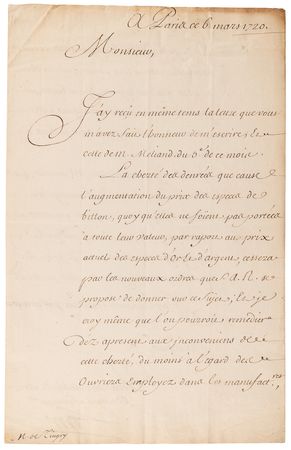 A Paris ce 6 mars 1720.
Monsieur,
J'ay reçu en même tems la lettre que vous
m'avez fait l'honneur de m'escrire, et
celle de M. Meliand, du 5e. de ce mois.
La cherté des denrées que cause
l'augmentation du prix des especes de
billon, quoy qu'elles ne soient pas portées
à toute leur valeur, par raport au prix
actuel des especes d'or et d'argent, cessera
par les nouveaux ordres que S. A. R. se
propose de donner sur ce sujet, Et je
croy même que l'on pourroit remedier
dez apresent aux inconveniens de
cette cherté, du moins à l'égard des
Ouvriers Employez dans les manufact.res,
M. de